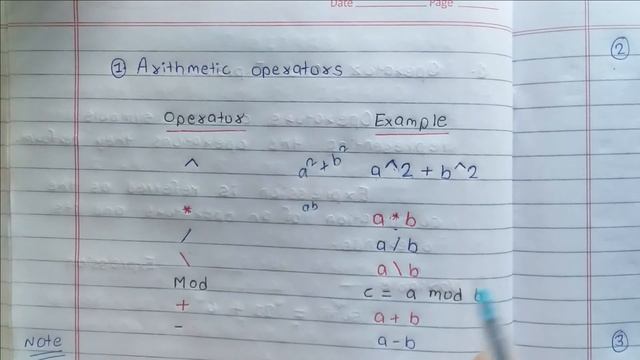 Date Page
① Arithmetic operators
②
Operator Example
^ a²+b² a^2 + b^2
* ab a * b
/ a / b
\ a \ b
Mod c = a mod b
+ a + b
- a - b
Note ③